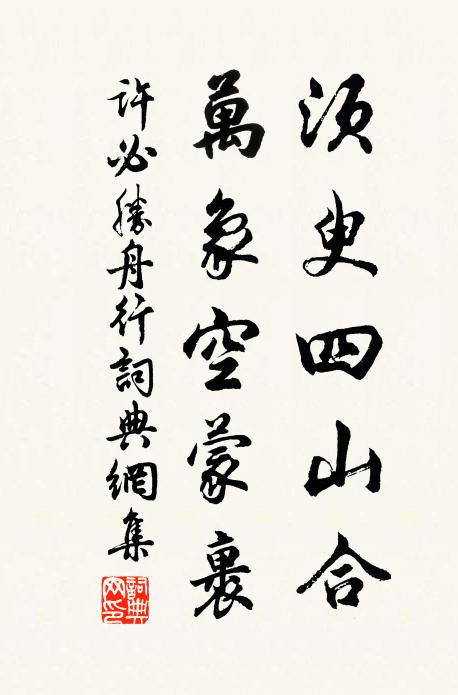 須臾四山合
萬象空蒙裏
許必勝舟行詞典網集
詞典网印